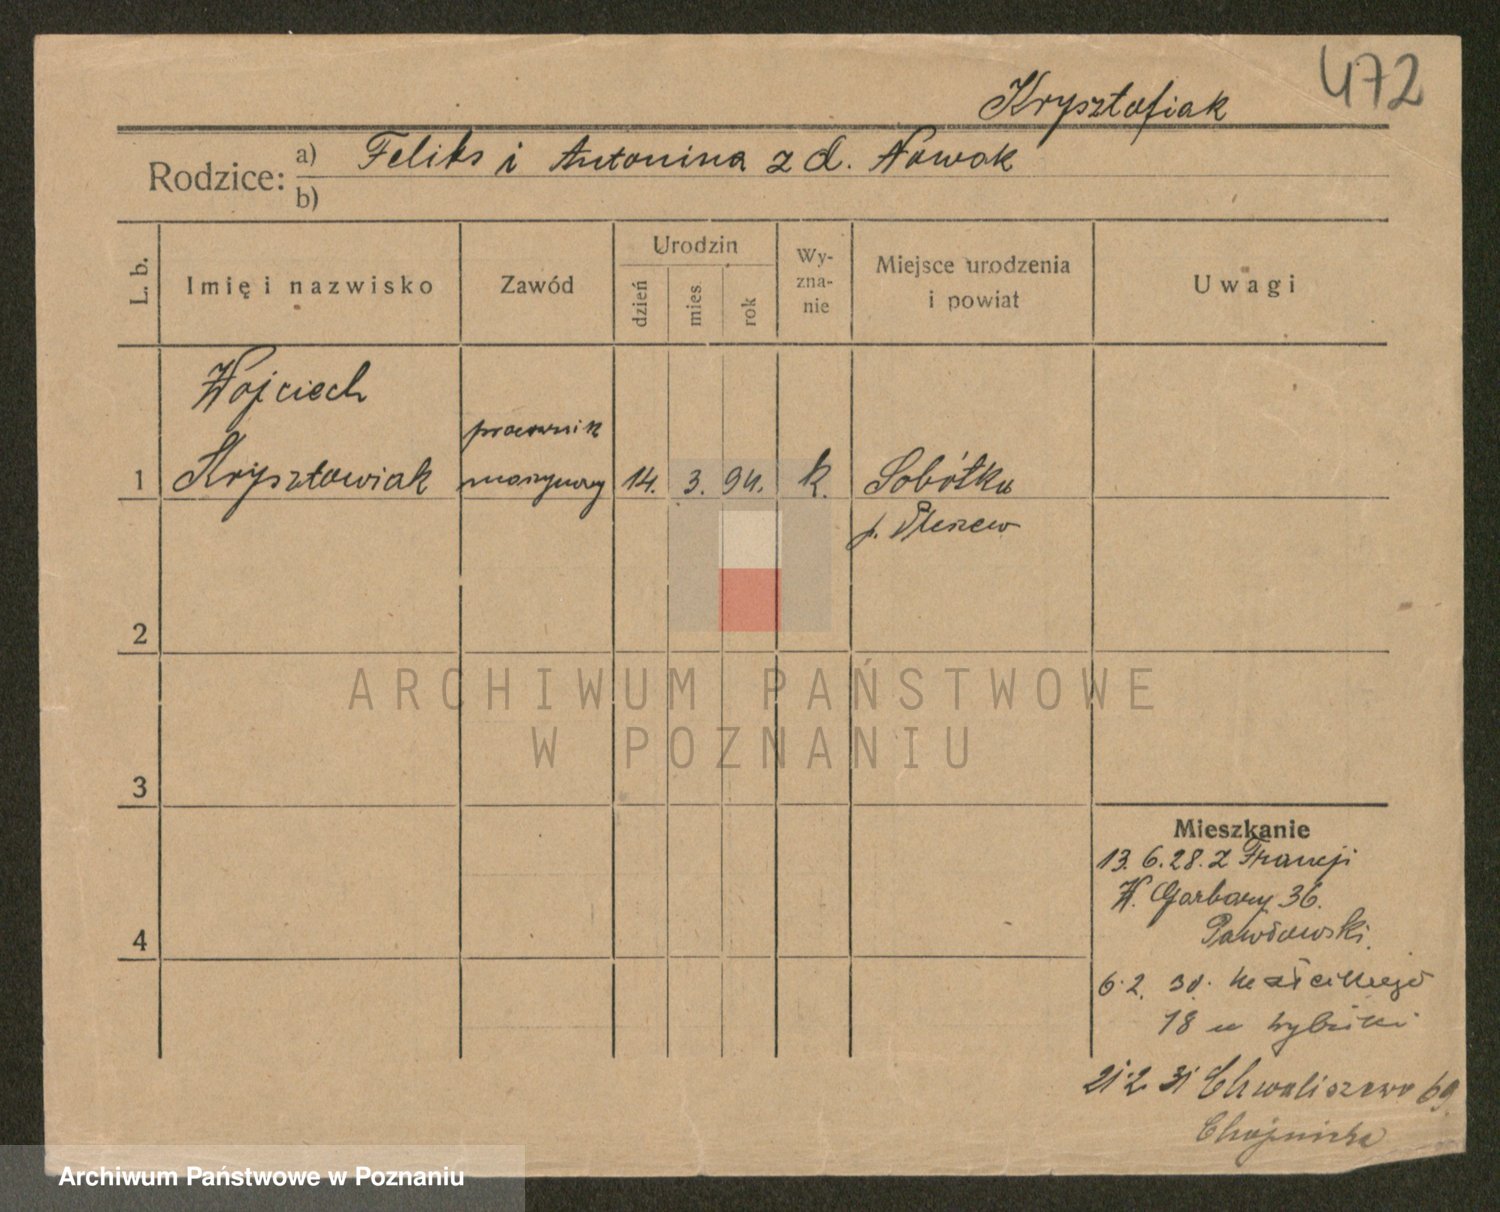 472
Krysztofiak
Rodzice:
a) Feliks i Antonina z d. Nowak
b)
L. b.
Imię i nazwisko
Zawód
Urodzin
dzień
mies.
rok
Wy-
zna-
nie
Miejsce urodzenia
i powiat
Uwagi
Wojciech
pracownik
1 Krysztowiak maszynowy 14. 3. 94. k. Sobótka
p. Pleszew
2
ARCHIWUM PAŃSTWOWE
W POZNANIU
3
Mieszkanie
13. 6. 28. z Francji
W. Garbary 36.
4
Pawłowski.
6.2. 30.
18 u
21.2 31 Chwaliszewo 69.
Chojnicka
Archiwum Państwowe w Poznaniu